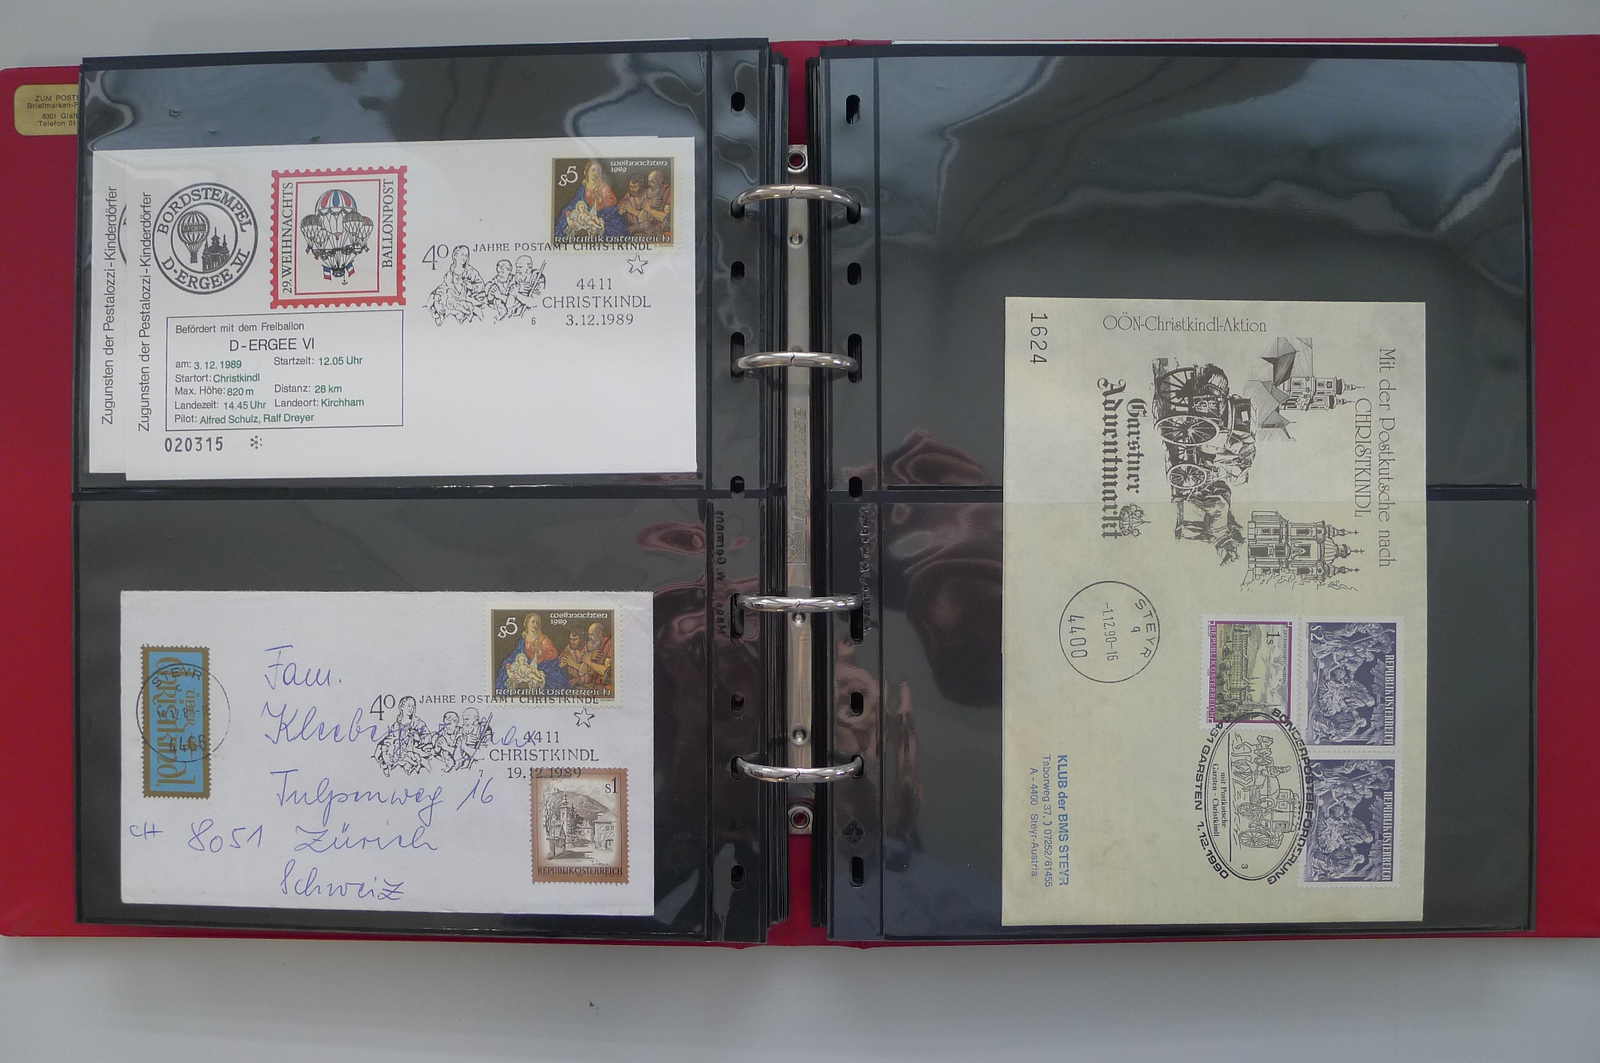 ZUM POST
Briefmarken-
Telefon
Zugunsten der Pestalozzi-Kinderdörfer
Zugunsten der Pestalozzi-Kinderdörfer
BORDSTEMPEL
D-ERGEE VI
29. WEIHNACHTS
BALLONPOST
Befördert mit dem Freiballon
D-ERGEE VI
am: 3.12.1989 Startzeit: 12.05 Uhr
Startort: Christkindl
Max. Höhe: 820 m Distanz: 28 km
Landezeit: 14.45 Uhr Landeort: Kirchham
Pilot: Alfred Schulz, Ralf Dreyer
020315
Weihnachten
1989
S5
REPUBLIK ÖSTERREICH
40 JAHRE POSTAMT CHRISTKINDL
4411
CHRISTKINDL
3.12.1989
6
Weihnachten
1989
S5
REPUBLIK ÖSTERREICH
40 JAHRE POSTAMT CHRISTKINDL
4411
CHRISTKINDL
19.12.1989
7
STEYR
ÜBER
Christkindl
Fam.
Tulpenweg 16
CH 8051 Zürich
Schweiz
S1
REPUBLIK ÖSTERREICH
1624
OÖN-Christkindl-Aktion
Mit der Postkutsche nach
CHRISTKINDL
Garstner
Adventmarkt
STEYR
-1.12.90-16
4400
1s
REPUBLIK ÖSTERREICH
S2
REPUBLIK ÖSTERREICH
REPUBLIK ÖSTERREICH
SONDERPOSTBEFÖRDERUNG
mit Postkutsche
Garsten - Christkindl
4431 GARSTEN 1.12.1990
KLUB der BMS STEYR
Taborweg 37, ) 07252/61455
A - 4400 Steyr-Austria